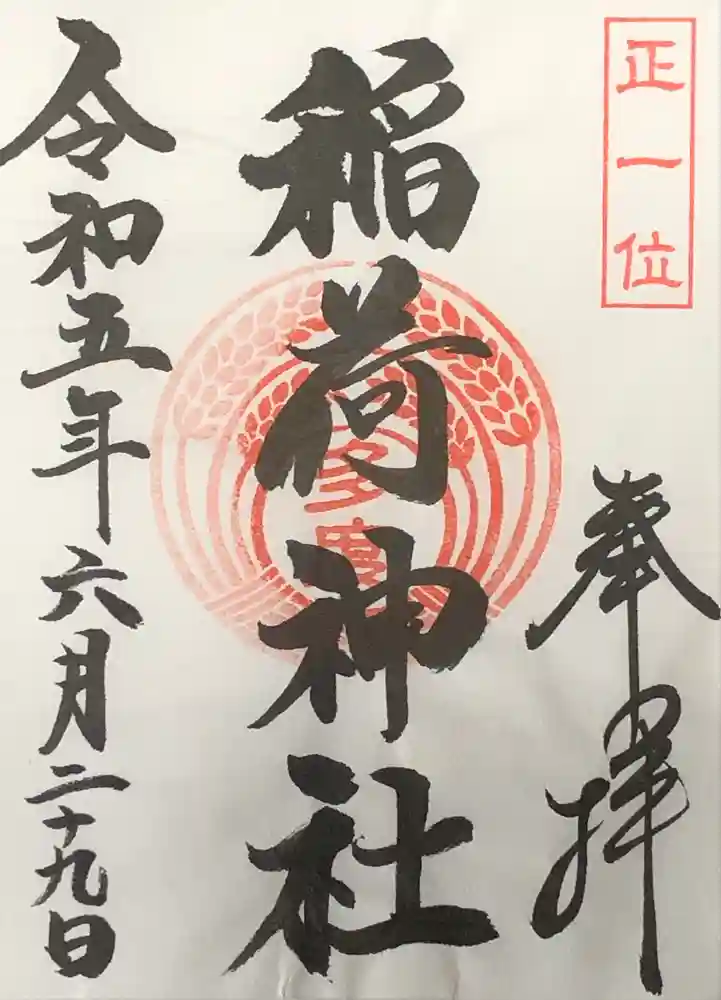 正一位
奉拝
稲荷神社
多度
令和五年六月二十九日